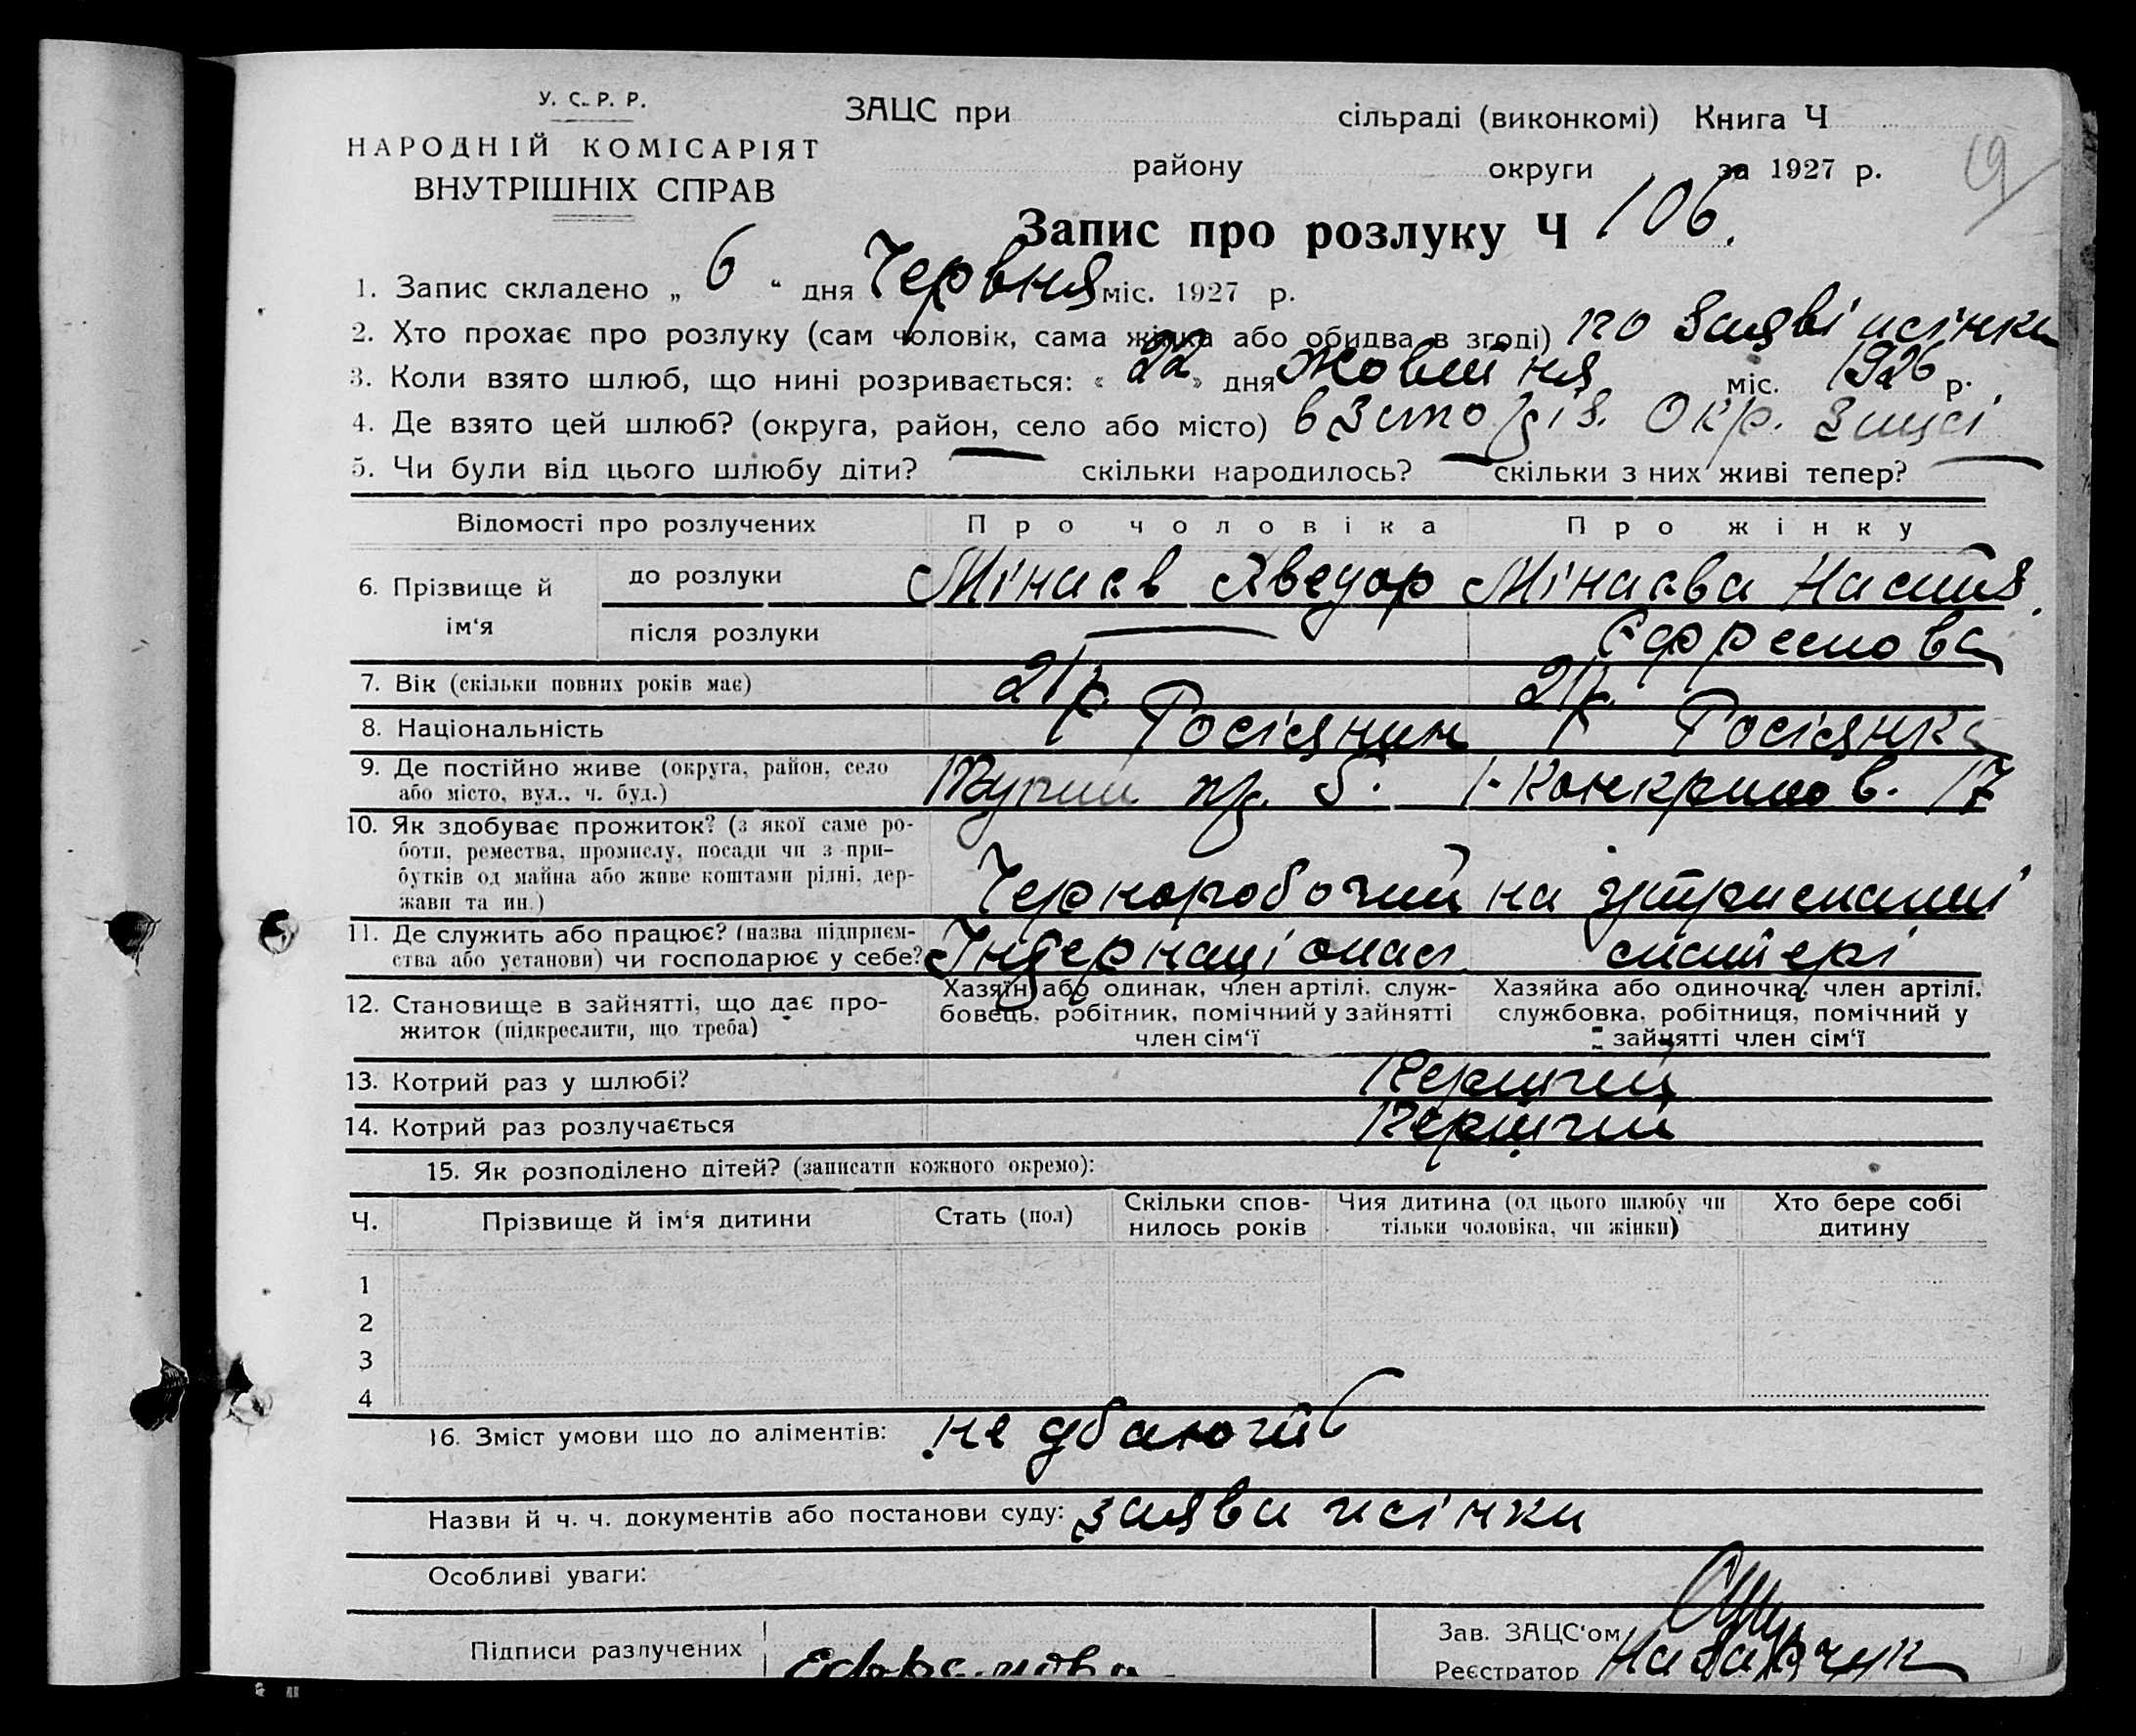 У. С. Р. Р.
НАРОДНІЙ КОМІСАРІЯТ
ВНУТРІШНІХ СПРАВ
ЗАЦС при сільраді (виконкомі) Книга Ч
району округи за 1927 р.
19
Запис про розлуку Ч 106.
1. Запис складено „ 6 “ дня Червня міс. 1927 р.
2. Хто прохає про розлуку (сам чоловік, сама жінка або обидва в згоді) по заяві жінки
3. Коли взято шлюб, що нині розривається: « 22 » дня Жовтня міс. 1926 р.
4. Де взято цей шлюб? (округа, район, село або місто) в Запоріз. Окр. Зацсі
5. Чи були від цього шлюбу діти? — скільки народилось? — скільки з них живі тепер? —
Відомості про розлучених Про чоловіка Про жінку
6. Прізвище й ім‘я
до розлуки Мінаєв Хведор Мінаєва Настя.
після розлуки — Єфремова
7. Вік (скільки повних років має) 21 р. 21 р.
8. Національність Росіянин Росіянка
9. Де постійно живе (округа, район, село
або місто, вул., ч. буд.) Тупий пр. 5. 17
10. Як здобуває прожиток? (з якої саме ро-
боти, ремества, промислу, посади чи з при-
бутків од майна або живе коштами рідні, дер-
жави та ин.) Черноробочий на утриманні
11. Де служить або працює? (назва підприєм-
ства або установи) чи господарює у себе? Інтернаціонал матері
12. Становище в зайнятті, що дає про-
житок (підкреслити, що треба)
Хазяїн або одинак, член артілі, служ-
бовець, робітник, помічний у зайнятті
член сім‘ї
Хазяйка або одиночка, член артілі,
службовка, робітниця, помічний у
зайнятті член сім‘ї
13. Котрий раз у шлюбі? Перший
14. Котрий раз розлучається Перший
15. Як розподілено дітей? (записати кожного окремо):
Ч. Прізвище й ім‘я дитини Стать (пол) Скільки спов-
нилось років Чия дитина (од цього шлюбу чи
тільки чоловіка, чи жінки) Хто бере собі
дитину
1
2
3
4
16. Зміст умови що до аліментів: не
Назви й ч. ч. документів або постанови суду: заява жінки
Особливі уваги:
Підписи разлучених Ефремова
Зав. ЗАЦС‘ом
Реєстратор